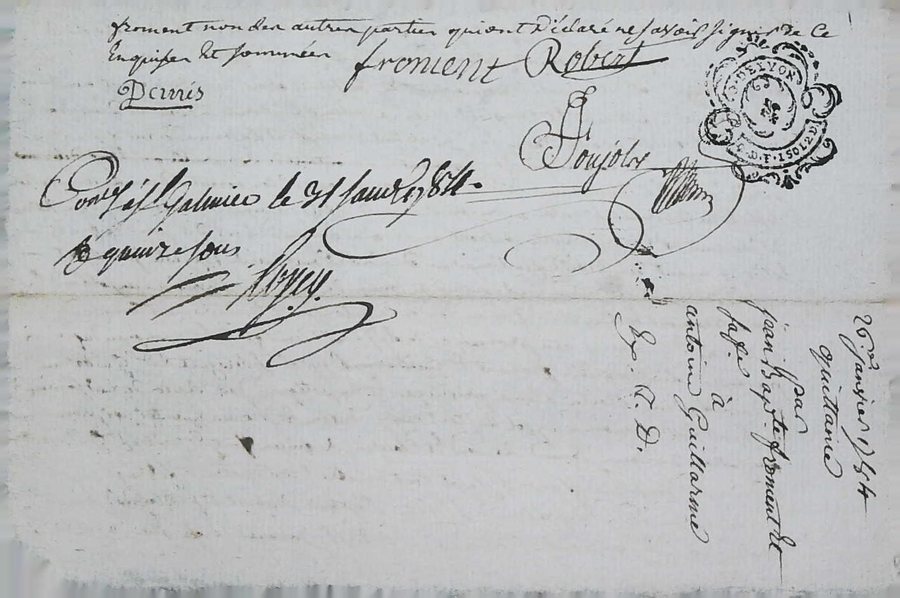 froment non des autres parties qui ont déclaré ne savoir signer de ce
Enquises et sommées
froment Robert
Denis
Poujols
le 31 janv. 1784.
quinze sous
26 janvier 1784
quittance
par
jean Baptte froment et
sa fe.
à
antoine Guillarme
Ex. T. D.